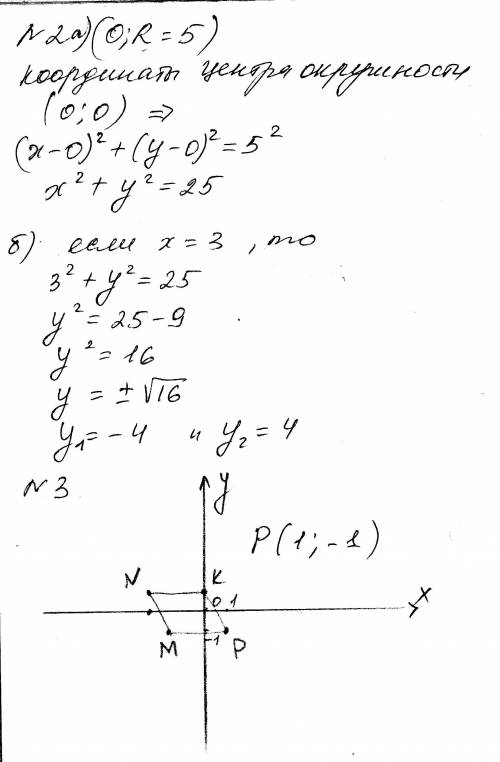 N2a) (O; R = 5)
координаты центра окружности
(0; 0) ⇒
(x-0)² + (y-0)² = 5²
x² + y² = 25
б) если x = 3, то
3² + y² = 25
y² = 25 - 9
y² = 16
y = ±√16
y₁ = -4 и y₂ = 4
N3
y
P(1; -1)
N K
0 1 x
M -1 P